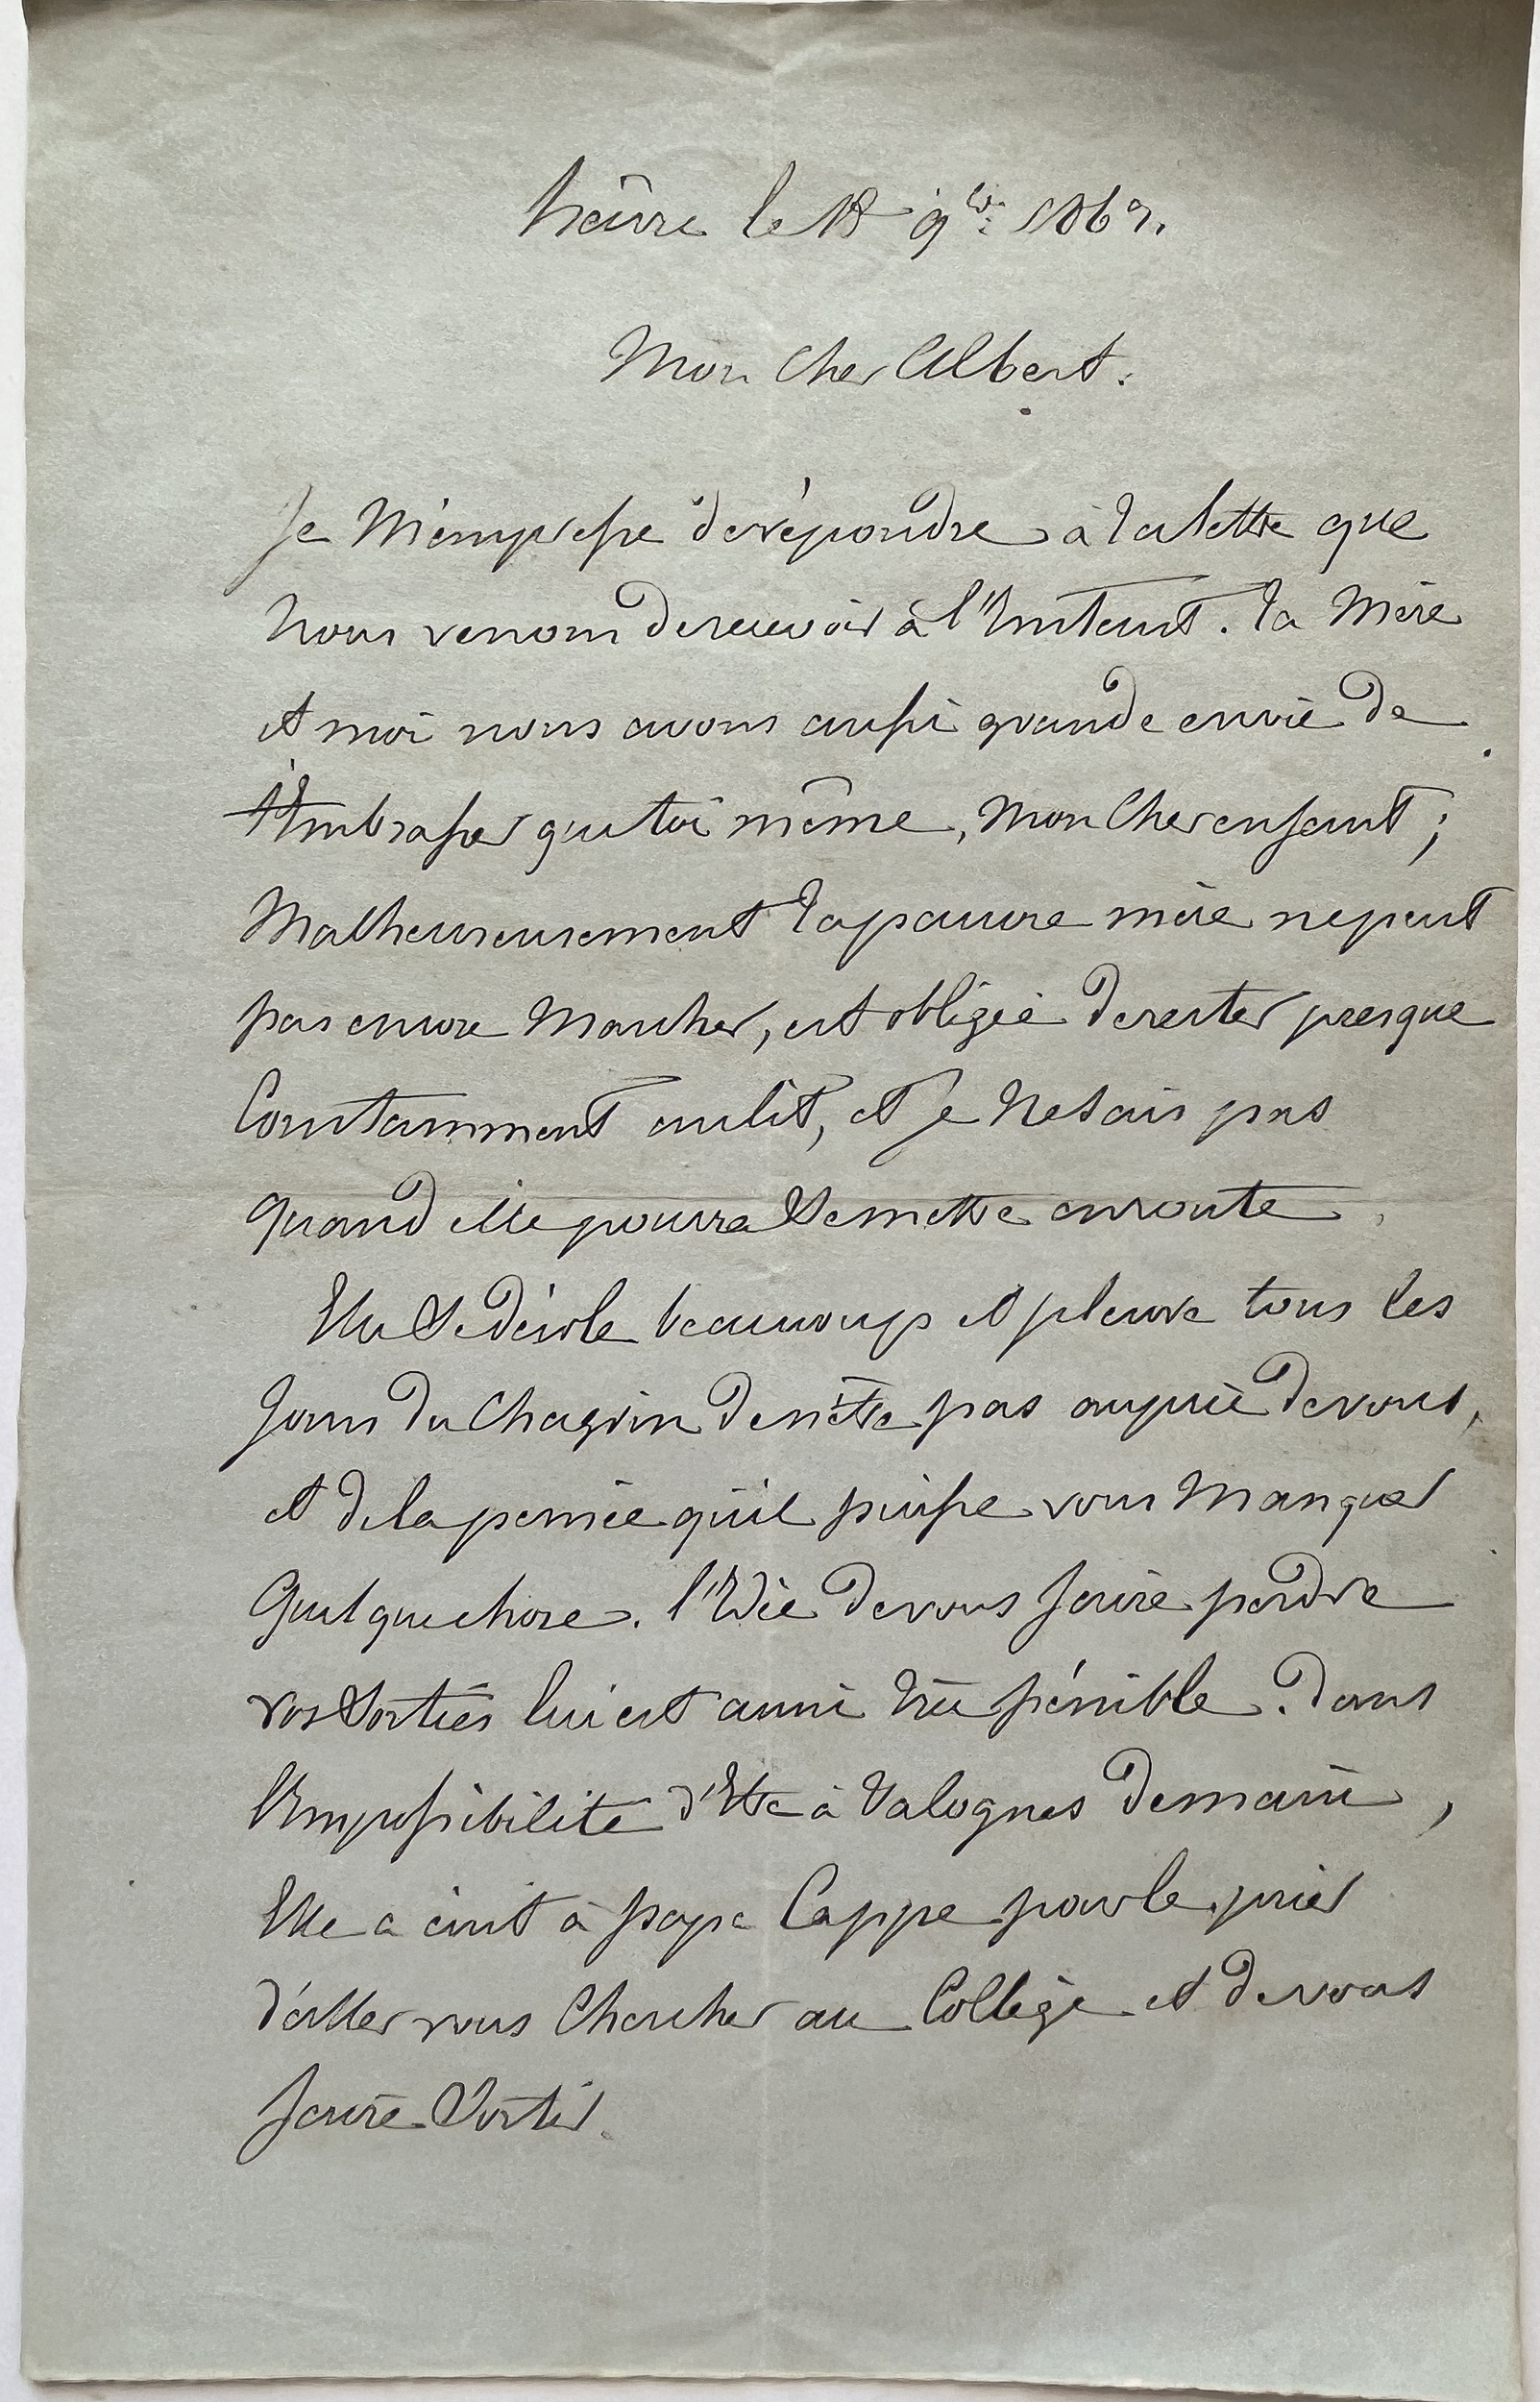 hâvre le 18 9bre 1869.
Mon Cher Albert.
Je M'empresse de répondre à ta lettre que
Nous venons de recevoir à l'Instant. Ta Mère
et moi nous avons aussi grande envie de
t'Embrasser que toi même, Mon Cher enfant ;
Malheureusement ta pauvre mère ne peut
pas encore Marcher, est obligée de rester presque
Constamment au lit, et Je Ne Sais pas
quand elle pourra Se mettre en route.
Elle Se désole beaucoup et pleure tous les
Jours du Chagrin de n'être pas auprès de vous,
et de la pensée qu'il puisse vous Manquer
Quelque chose. l'Idée de vous faire perdre
vos Sorties lui est aussi très pénible. Dans
l'Impossibilité d'Etre à Valognes Demain,
Elle a écrit à papa Cappe pour le prier
d'aller vous Chercher au Collège et de vous
faire Sortir.